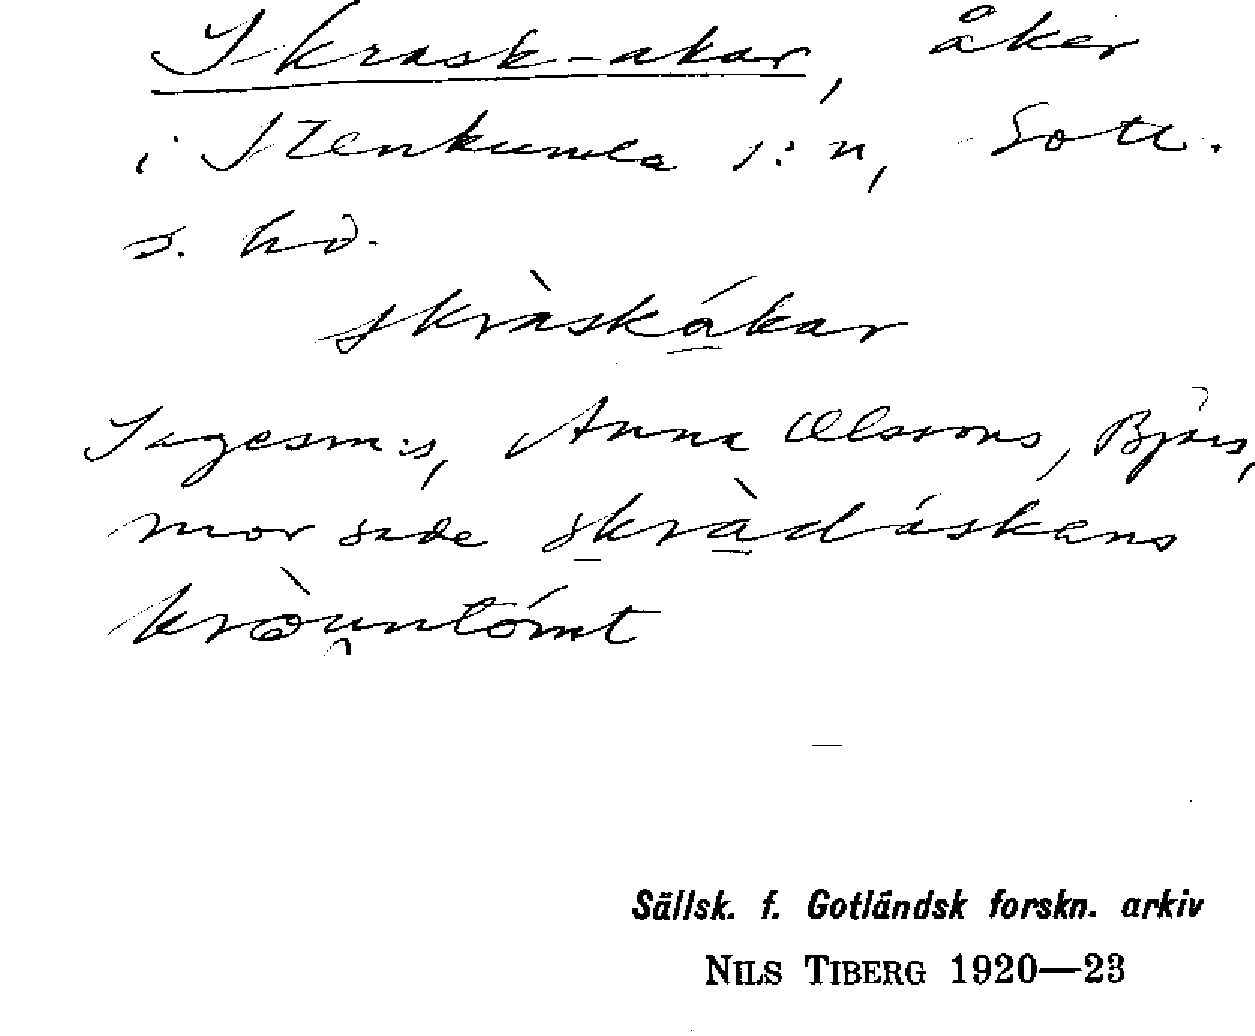 Skrask-akar, åker
i Stenkumla s:n, Gotl.
s. hd.
skràskákar
Sagesm:s, Anna Olssons, Bjärs,
mor sade skràdáskens
kròuntómt
Sällsk. f. Gotländsk forskn. arkiv
NILS TIBERG 1920—23